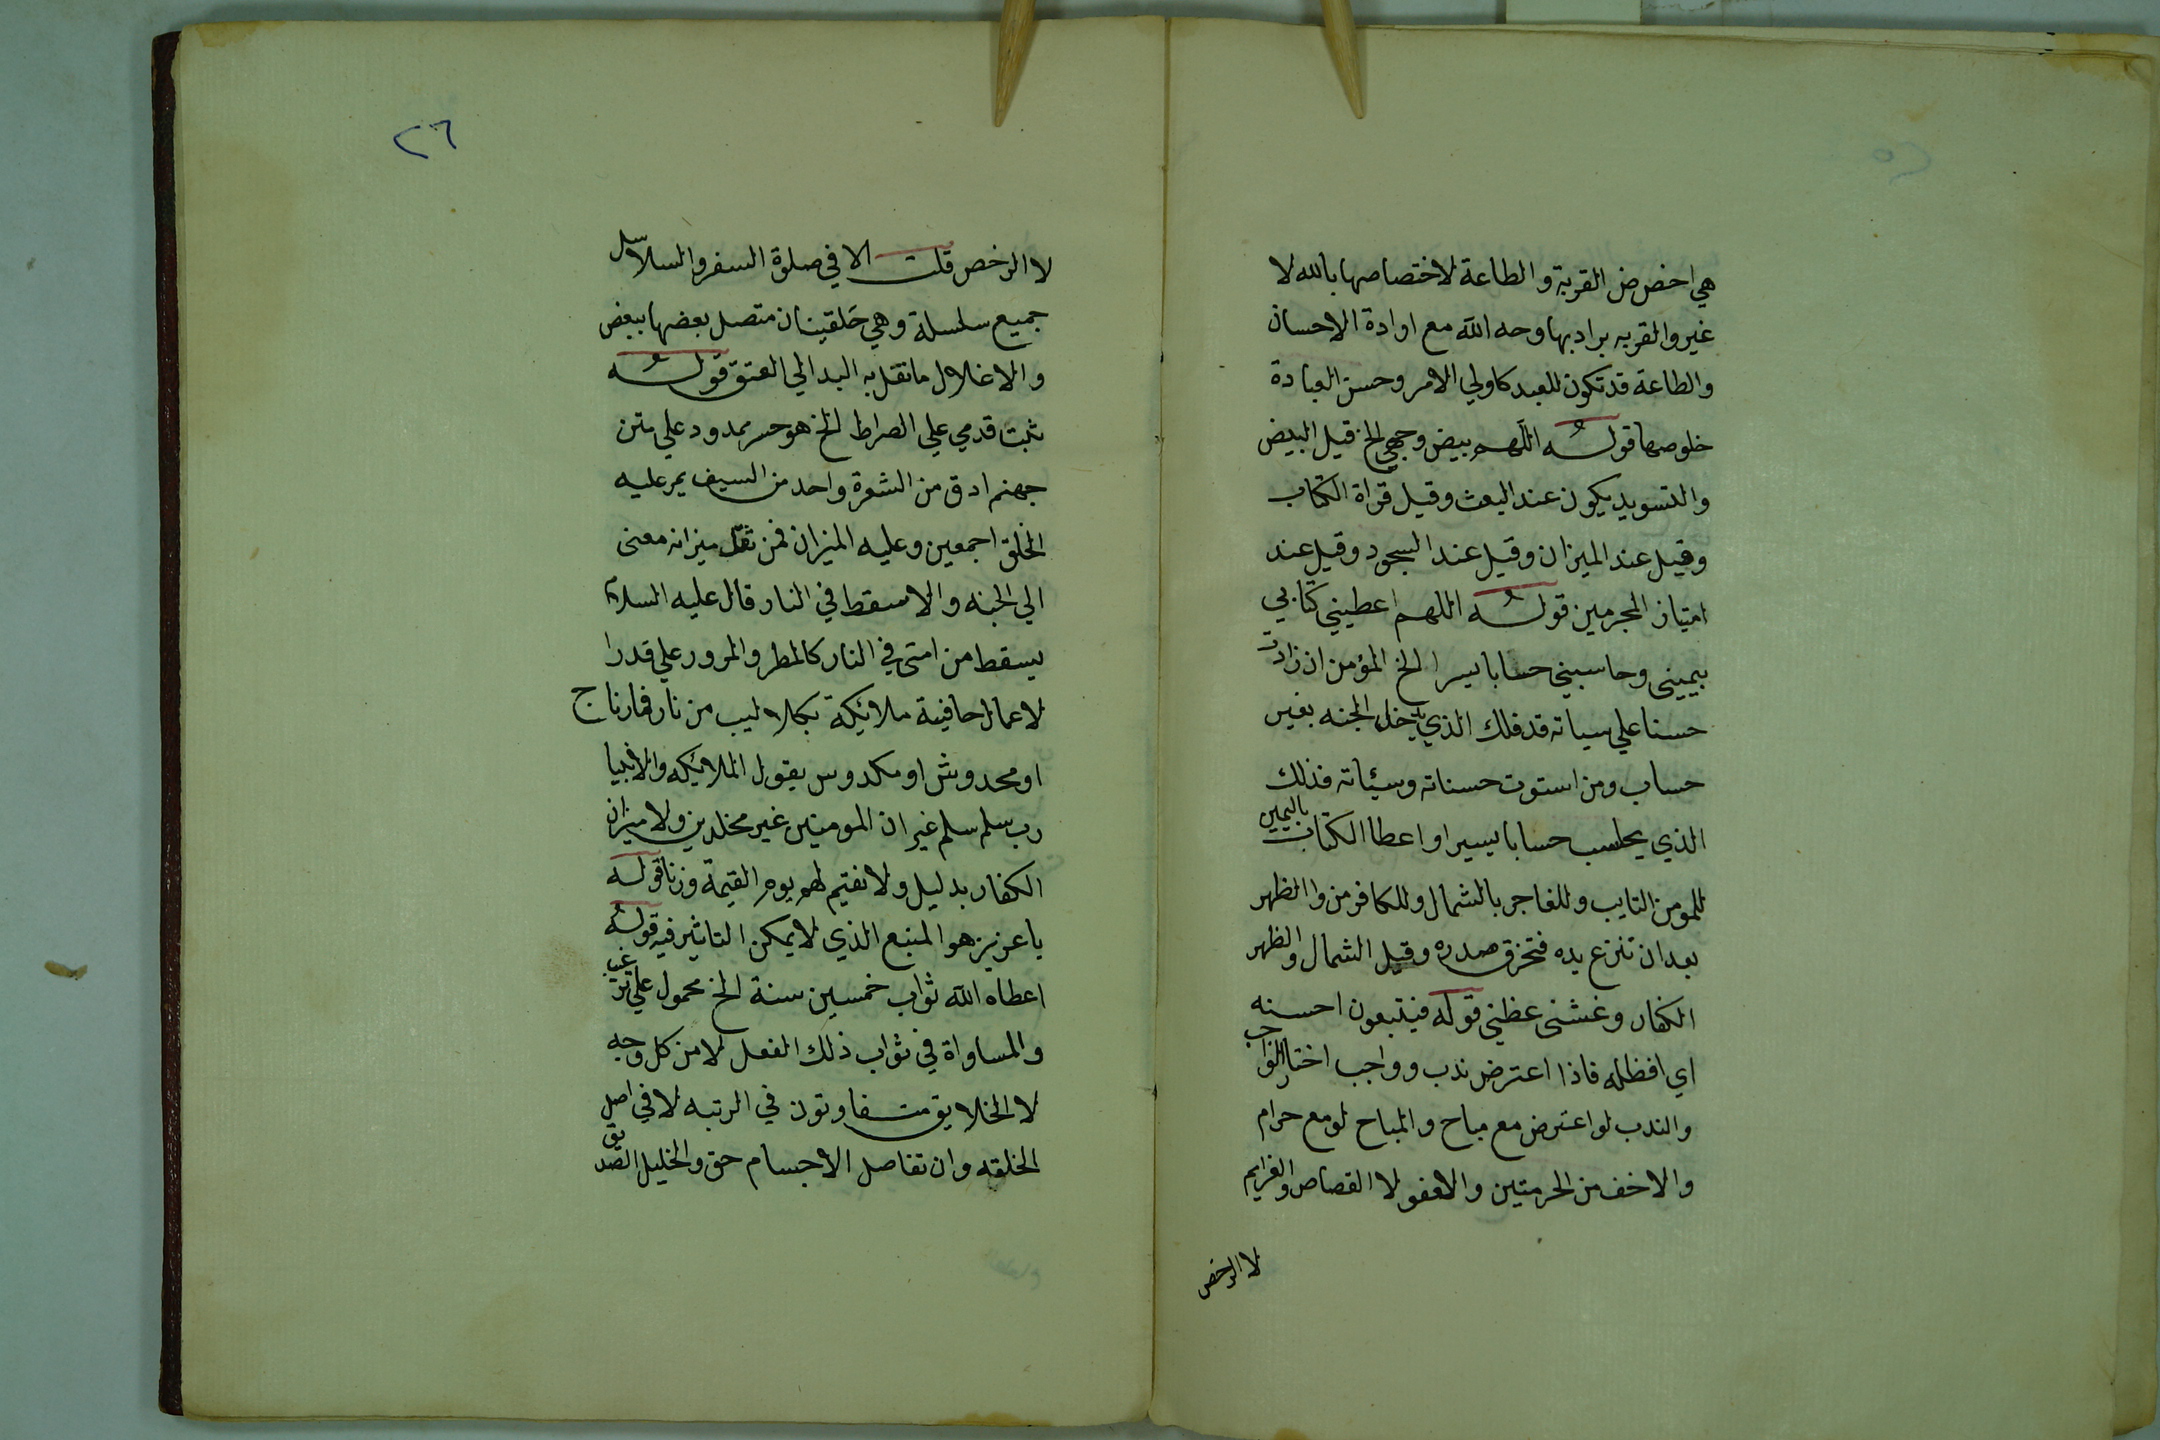 هي اخص من القربة والطاعة لاختصاصها بالله لا
غير والقربه يراد بها وجه الله مع ارادة الاحسان
والطاعة قد تكون للعبد كاولي الامر وحسن العبادة
خلوصها قوله اللهم بيض وجهي الخ قيل البيض
والتسويد يكون عند البعث وقيل قراة الكتاب
وقيل عند الميزان وقيل عند السجود وقيل عند
امتياز المجرمين قوله اللهم اعطيني كتابي
بيميني وحاسبني حسابا يسرا الخ المؤمن ان زادت
حسنا علي سياته قد فلك الذي يدخل الجنه بغير
حساب ومن استوت حسناته وسيئاته فذلك
الذي يحاسب حسابا يسيرا واعطا الكتاب باليمين
للمومن التايب وللفاجر بالشمال وللكافر من وا الظهر
بعد ان تنزع يده فتخرق صدره وقيل الشمال والظهر
الكفار وغشني عظني قوله فيتبعون احسنه
اي افظله فاذا اعترض ندب وواجب اختار الواجب
والندب لو اعترض مع مباح والمباح لو مع حرام
والاخف من الحرمتين والاعفو لا القصاص والغرايم
لا الرخص
٢٦
لا الرخص قلت الا في صلوة السفر والسلاسل
جميع سلسلة وهي حلقينان متصل بعضها ببعض
والاغلال ما نقل به اليد الي العنق قوله
ثبت قدمي علي الصراط الخ هو جسر ممدود علي متن
جهنم ادق من الشعرة واحد من السيف يمر عليه
الخلق اجمعين وعليه الميزان فمن ثقل ميزانه معنى
الي الجنه والا سقط في النار قال عليه السلام
يسقط من امتى في النار كالمطر والمرور علي قدر ا
لاعمال حافية ملائكة بكلاليب من نار فمارناج
او محدوش او مكدوس يقول الملائكه والانبيا
رب سلم سلم غير ان المومنين غير مخلدين ولا ميزان
الكفار بدليل ولا نقيم لهم يوم القيمة وزنا قوله
يا عزيز هو المنبع الذي لا يمكن التاثير فيه قوله
اعطاه الله ثواب خمسين سنة الخ محمول علي ترغيب
والمساواة في ثواب ذلك الفعل لا من كل وجه
لا الخلايق متفاوتون في الرتبه لا في اصل
الخلقه وان تفاصل الاجسام حق والخليل الصديق